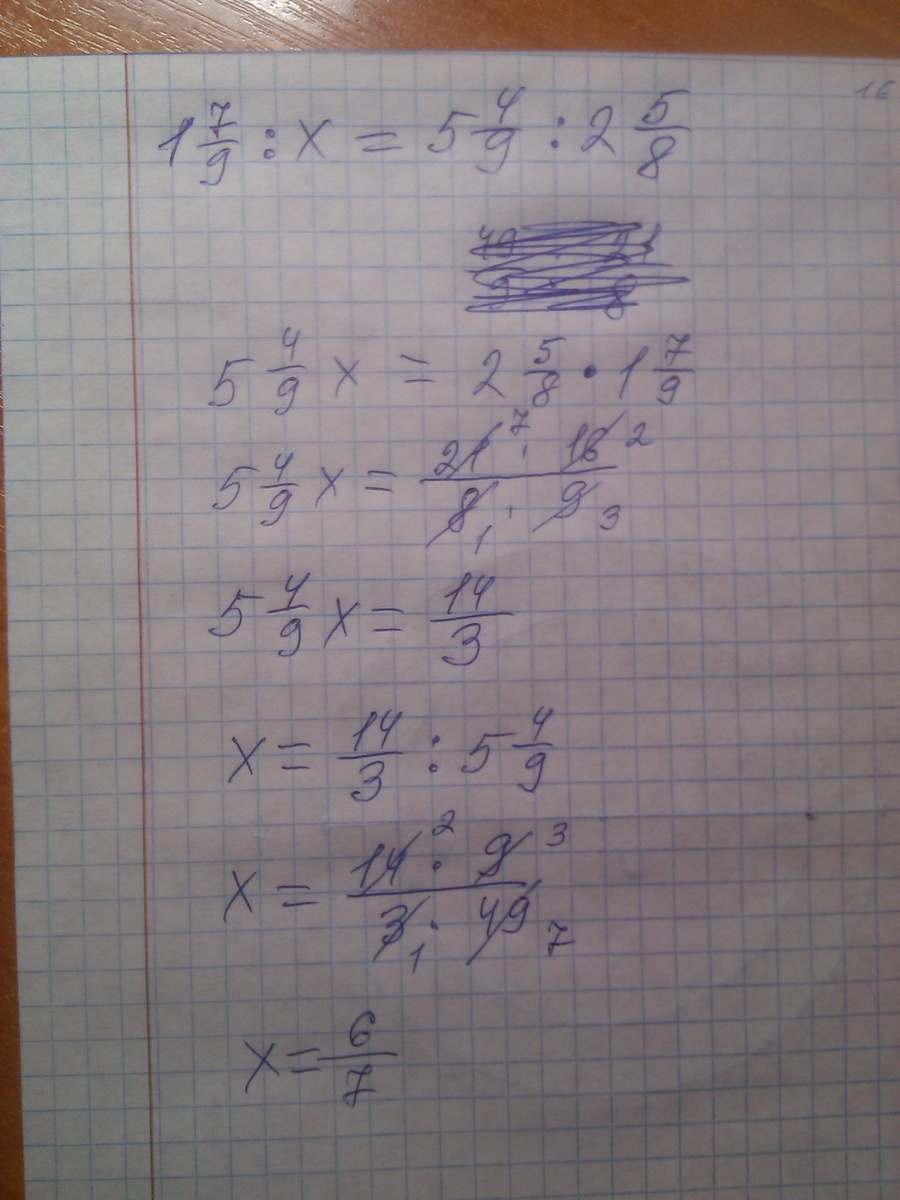 16
1 7/9 : x = 5 4/9 : 2 5/8
5 4/9 x = 2 5/8 · 1 7/9
5 4/9 x = 21 7 · 16 2 / 8 1 · 9 3
5 4/9 x = 14/3
x = 14/3 : 5 4/9
x = 14 2 · 9 3 / 3 1 · 49 7
x = 6/7